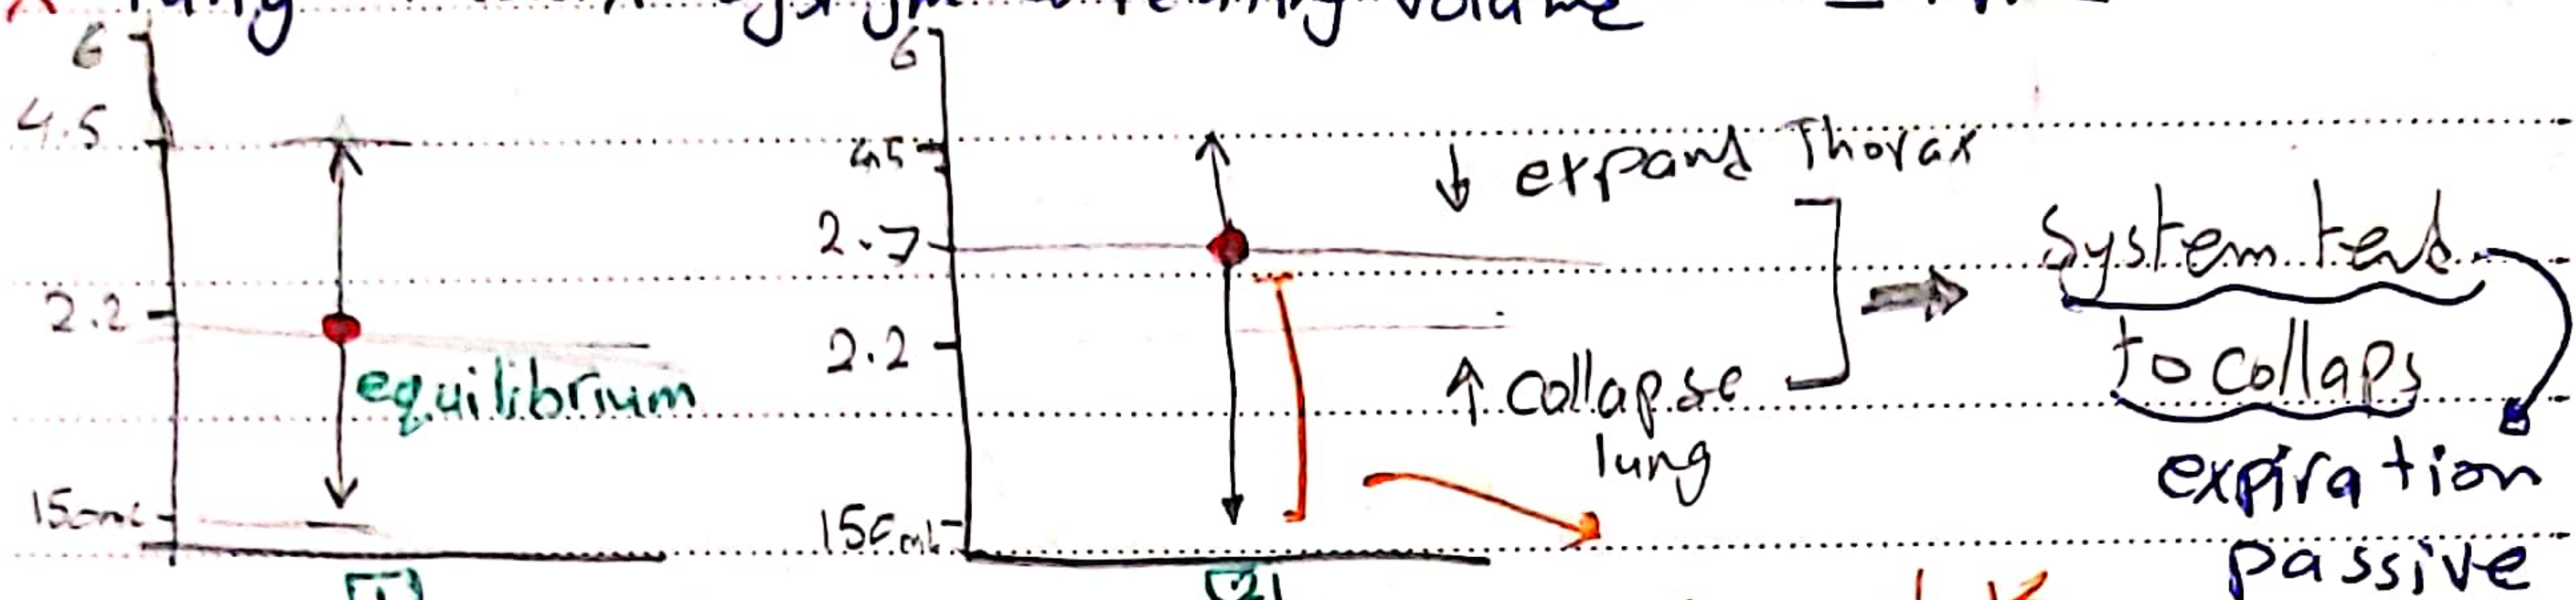 lung volume
6
4.5
2.2
equilibrium
150ml
1
6
4.5
2.7
2.2
150ml
2
↓ expand Thorax
↑ collapse
lung
system tend
to collaps
expiration
passive